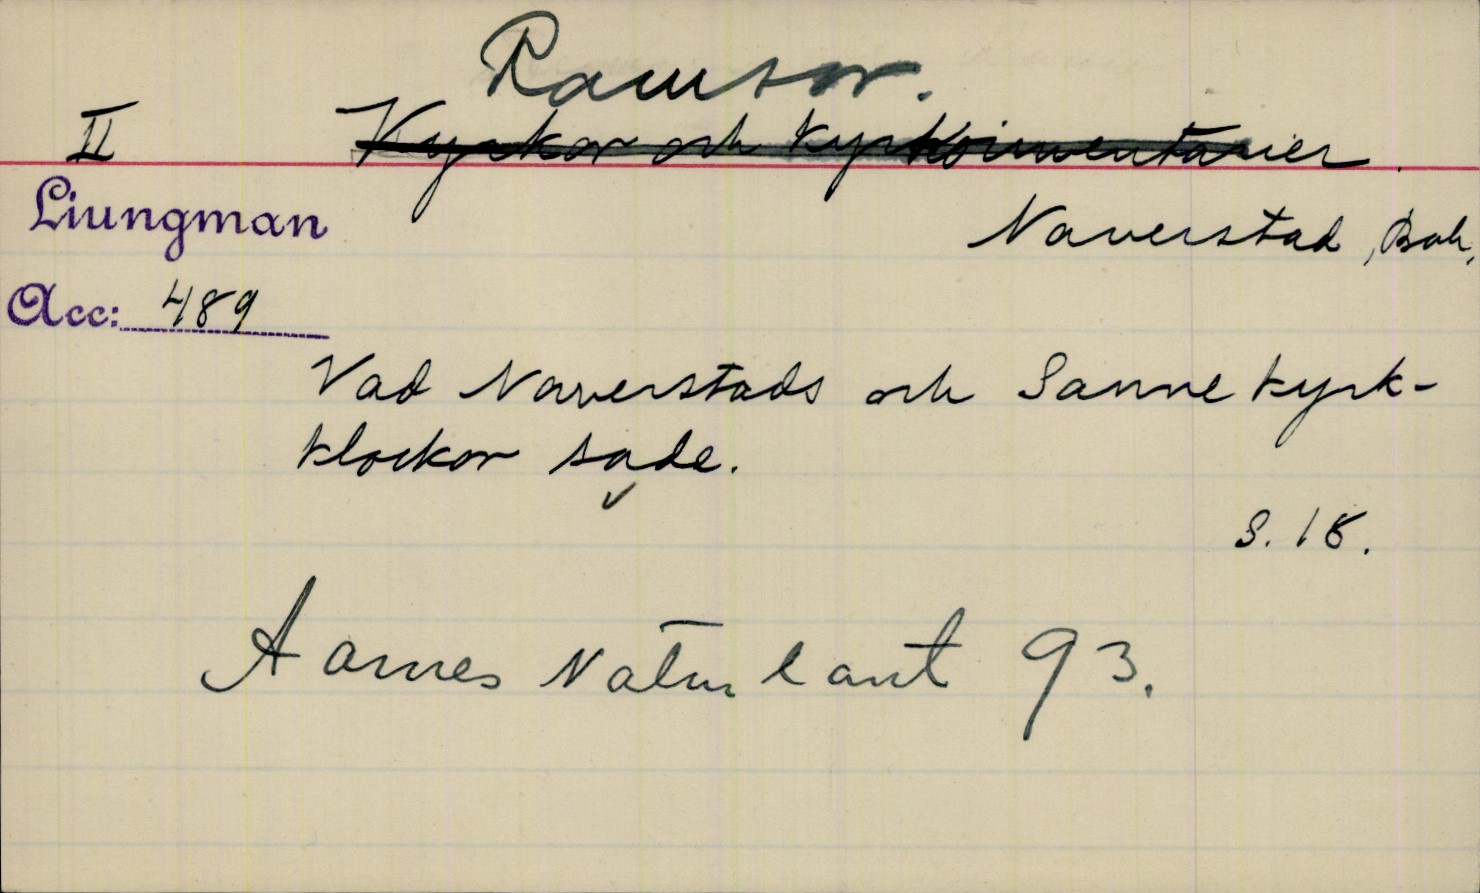 Ramsor.
II Kyrkor och kyrkoinventarier.
Liungman
Naverstad, Boh.
Acc: 489
Vad Naverstads och Sanne kyrk-
klockor sade.
S. 18.
Aarnes Naturlaut 93.